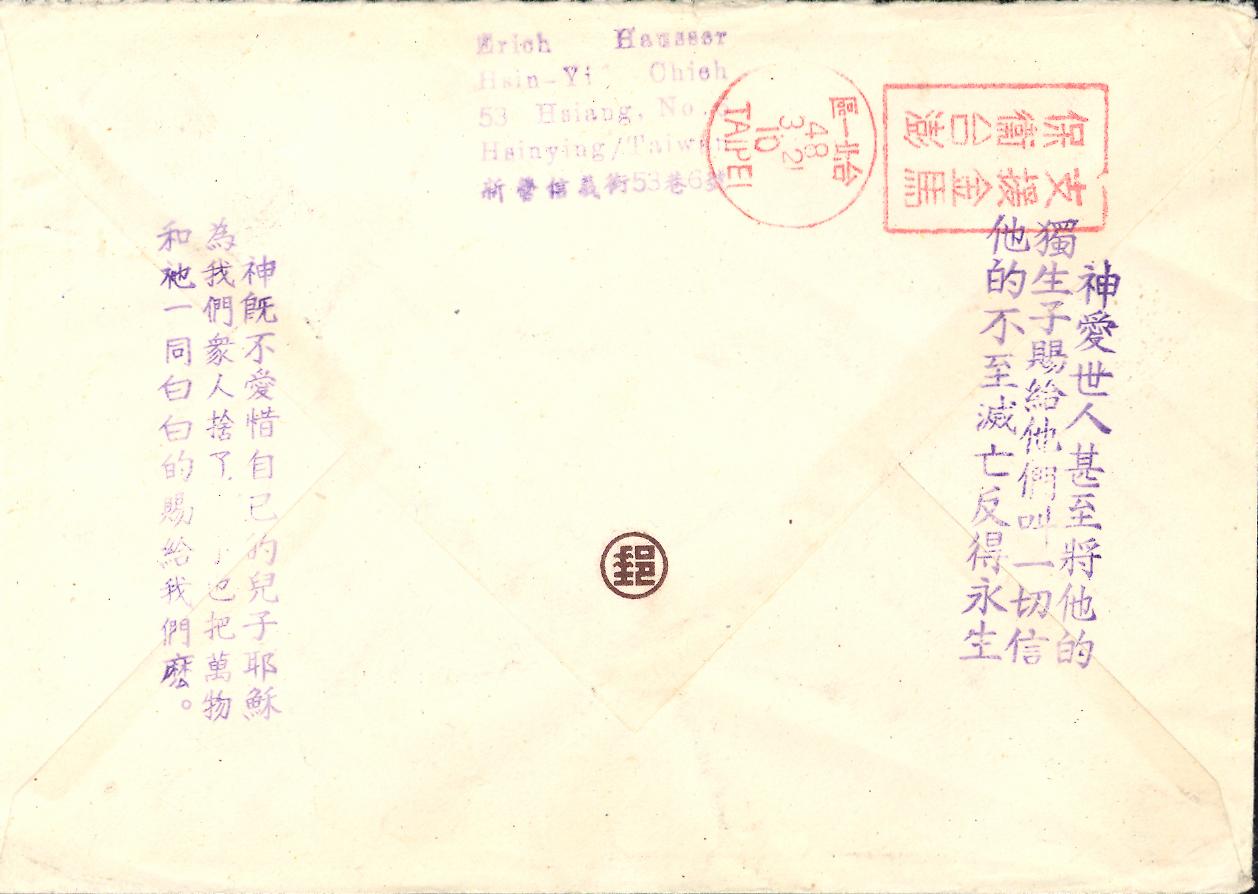 Erich Hausser
Hsin-Yi Chieh
53 Hsiang, No.
Hsinying/Taiwan
新營信義街53巷6號
台北一區
48
3 2
10
TAIPEI
支援金馬
保衛台澎
神愛世人甚至將他的
獨生子賜給他們叫一切信
他的不至滅亡反得永生
郵
神既不愛惜自己的兒子耶穌
為我們衆人捨了 也把萬物
和祂一同白白的賜給我們麼。